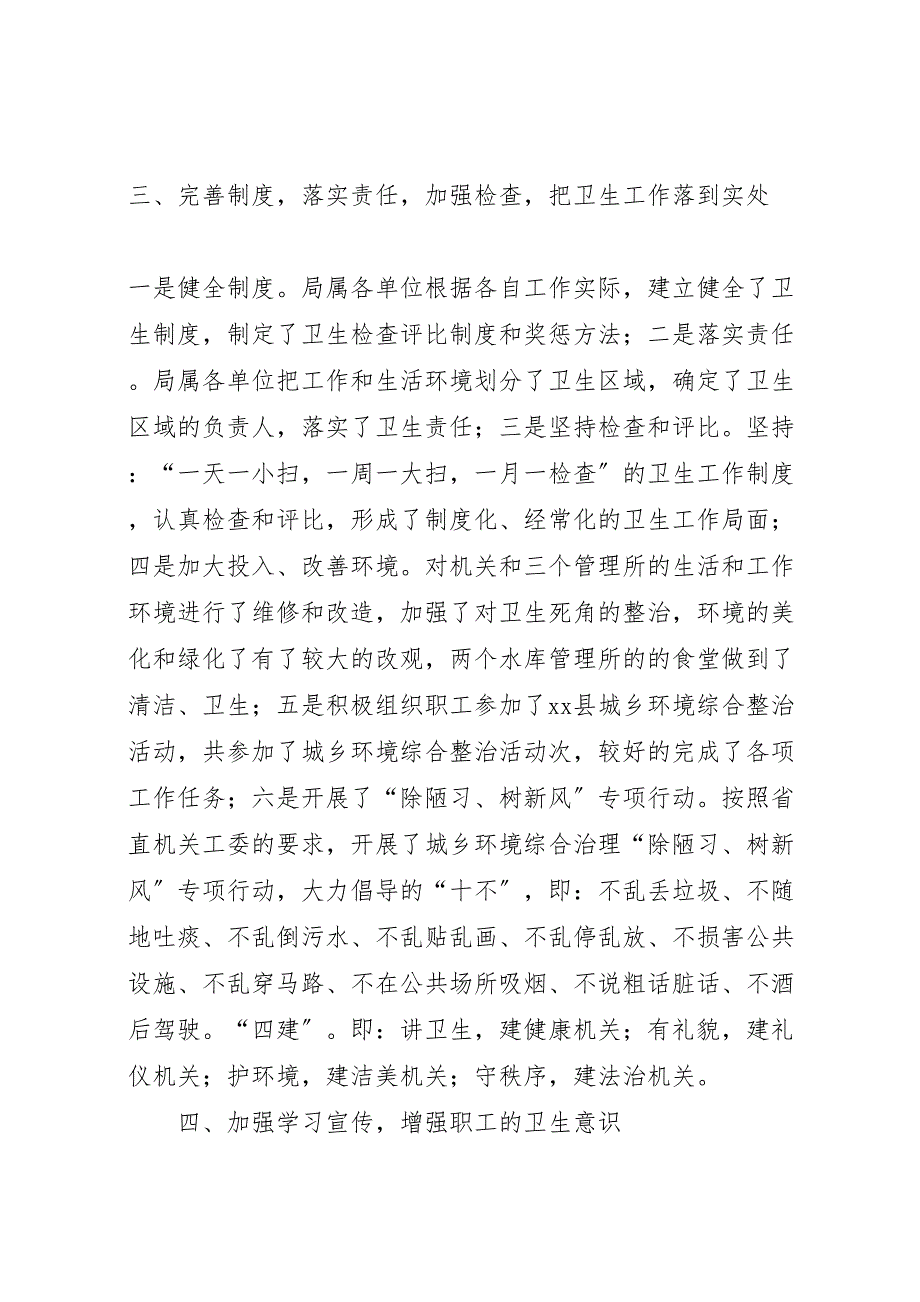 三、完善制度，落实责任，加强检查，把卫生工作落到实处
一是健全制度。局属各单位根据各自工作实际，建立健全了卫
生制度，制定了卫生检查评比制度和奖惩方法；二是落实责任
。局属各单位把工作和生活环境划分了卫生区域，确定了卫生
区域的负责人，落实了卫生责任；三是坚持检查和评比。坚持
：“一天一小扫，一周一大扫，一月一检查〞的卫生工作制度
，认真检查和评比，形成了制度化、经常化的卫生工作局面；
四是加大投入、改善环境。对机关和三个管理所的生活和工作
环境进行了维修和改造，加强了对卫生死角的整治，环境的美
化和绿化了有了较大的改观，两个水库管理所的的食堂做到了
清洁、卫生；五是积极组织职工参加了xx县城乡环境综合整治
活动，共参加了城乡环境综合整治活动次，较好的完成了各项
工作任务；六是开展了“除陋习、树新风〞专项行动。按照省
直机关工委的要求，开展了城乡环境综合治理“除陋习、树新
风〞专项行动，大力倡导的“十不〞，即：不乱丢垃圾、不随
地吐痰、不乱倒污水、不乱贴乱画、不乱停乱放、不损害公共
设施、不乱穿马路、不在公共场所吸烟、不说粗话脏话、不酒
后驾驶。“四建〞。即：讲卫生，建健康机关；有礼貌，建礼
仪机关；护环境，建洁美机关；守秩序，建法治机关。
四、加强学习宣传，增强职工的卫生意识